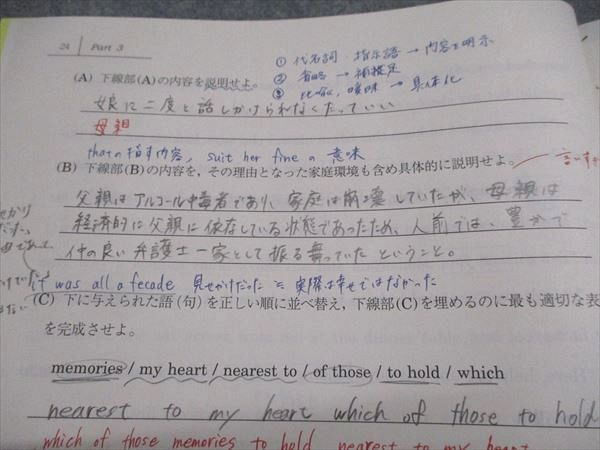 24 Part 3
① 代名詞・指示語 → 内容を明示
② 省略 → 補足
③ 比喩, 曖昧 → 具体化
(A) 下線部(A)の内容を説明せよ。
娘に二度と話しかけられなくたっていい
母親
thatの指す内容, suit her fine の意味
(B) 下線部(B)の内容を, その理由となった家庭環境も含め具体的に説明せよ。
父親はアルコール中毒者であり、家庭は崩壊していたが、母親は
経済的に父親に依存している状態であったため、人前では、豊かで
仲の良い弁護士一家として振る舞っていたということ。
it was all a fecade 見せかけだった = 実際は幸せではなかった
(C) 下に与えられた語(句)を正しい順に並べ替え, 下線部(C)を埋めるのに最も適切な表
を完成させよ。
memories / my heart / nearest to / of those / to hold / which
nearest to my heart which of those to hold
which of those memories to hold nearest to my heart